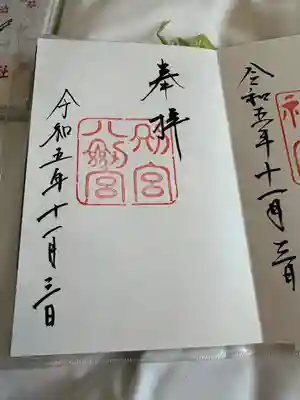 令和五年十一月三日
奉拝
別宮
八剣宮
令和五年十一月三日
社